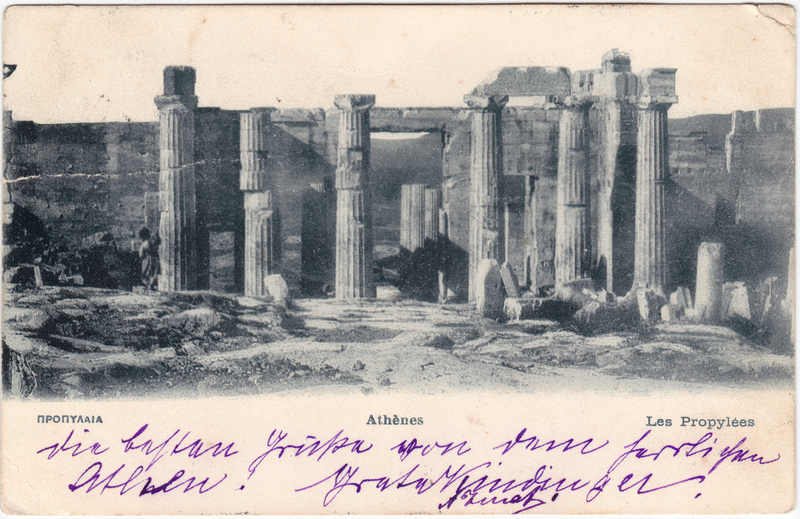 ΠΡΟΠΥΛΑΙΑ Athènes Les Propylées
die besten Grüße von dem herrlichen
Athen! Greta Kindinger!